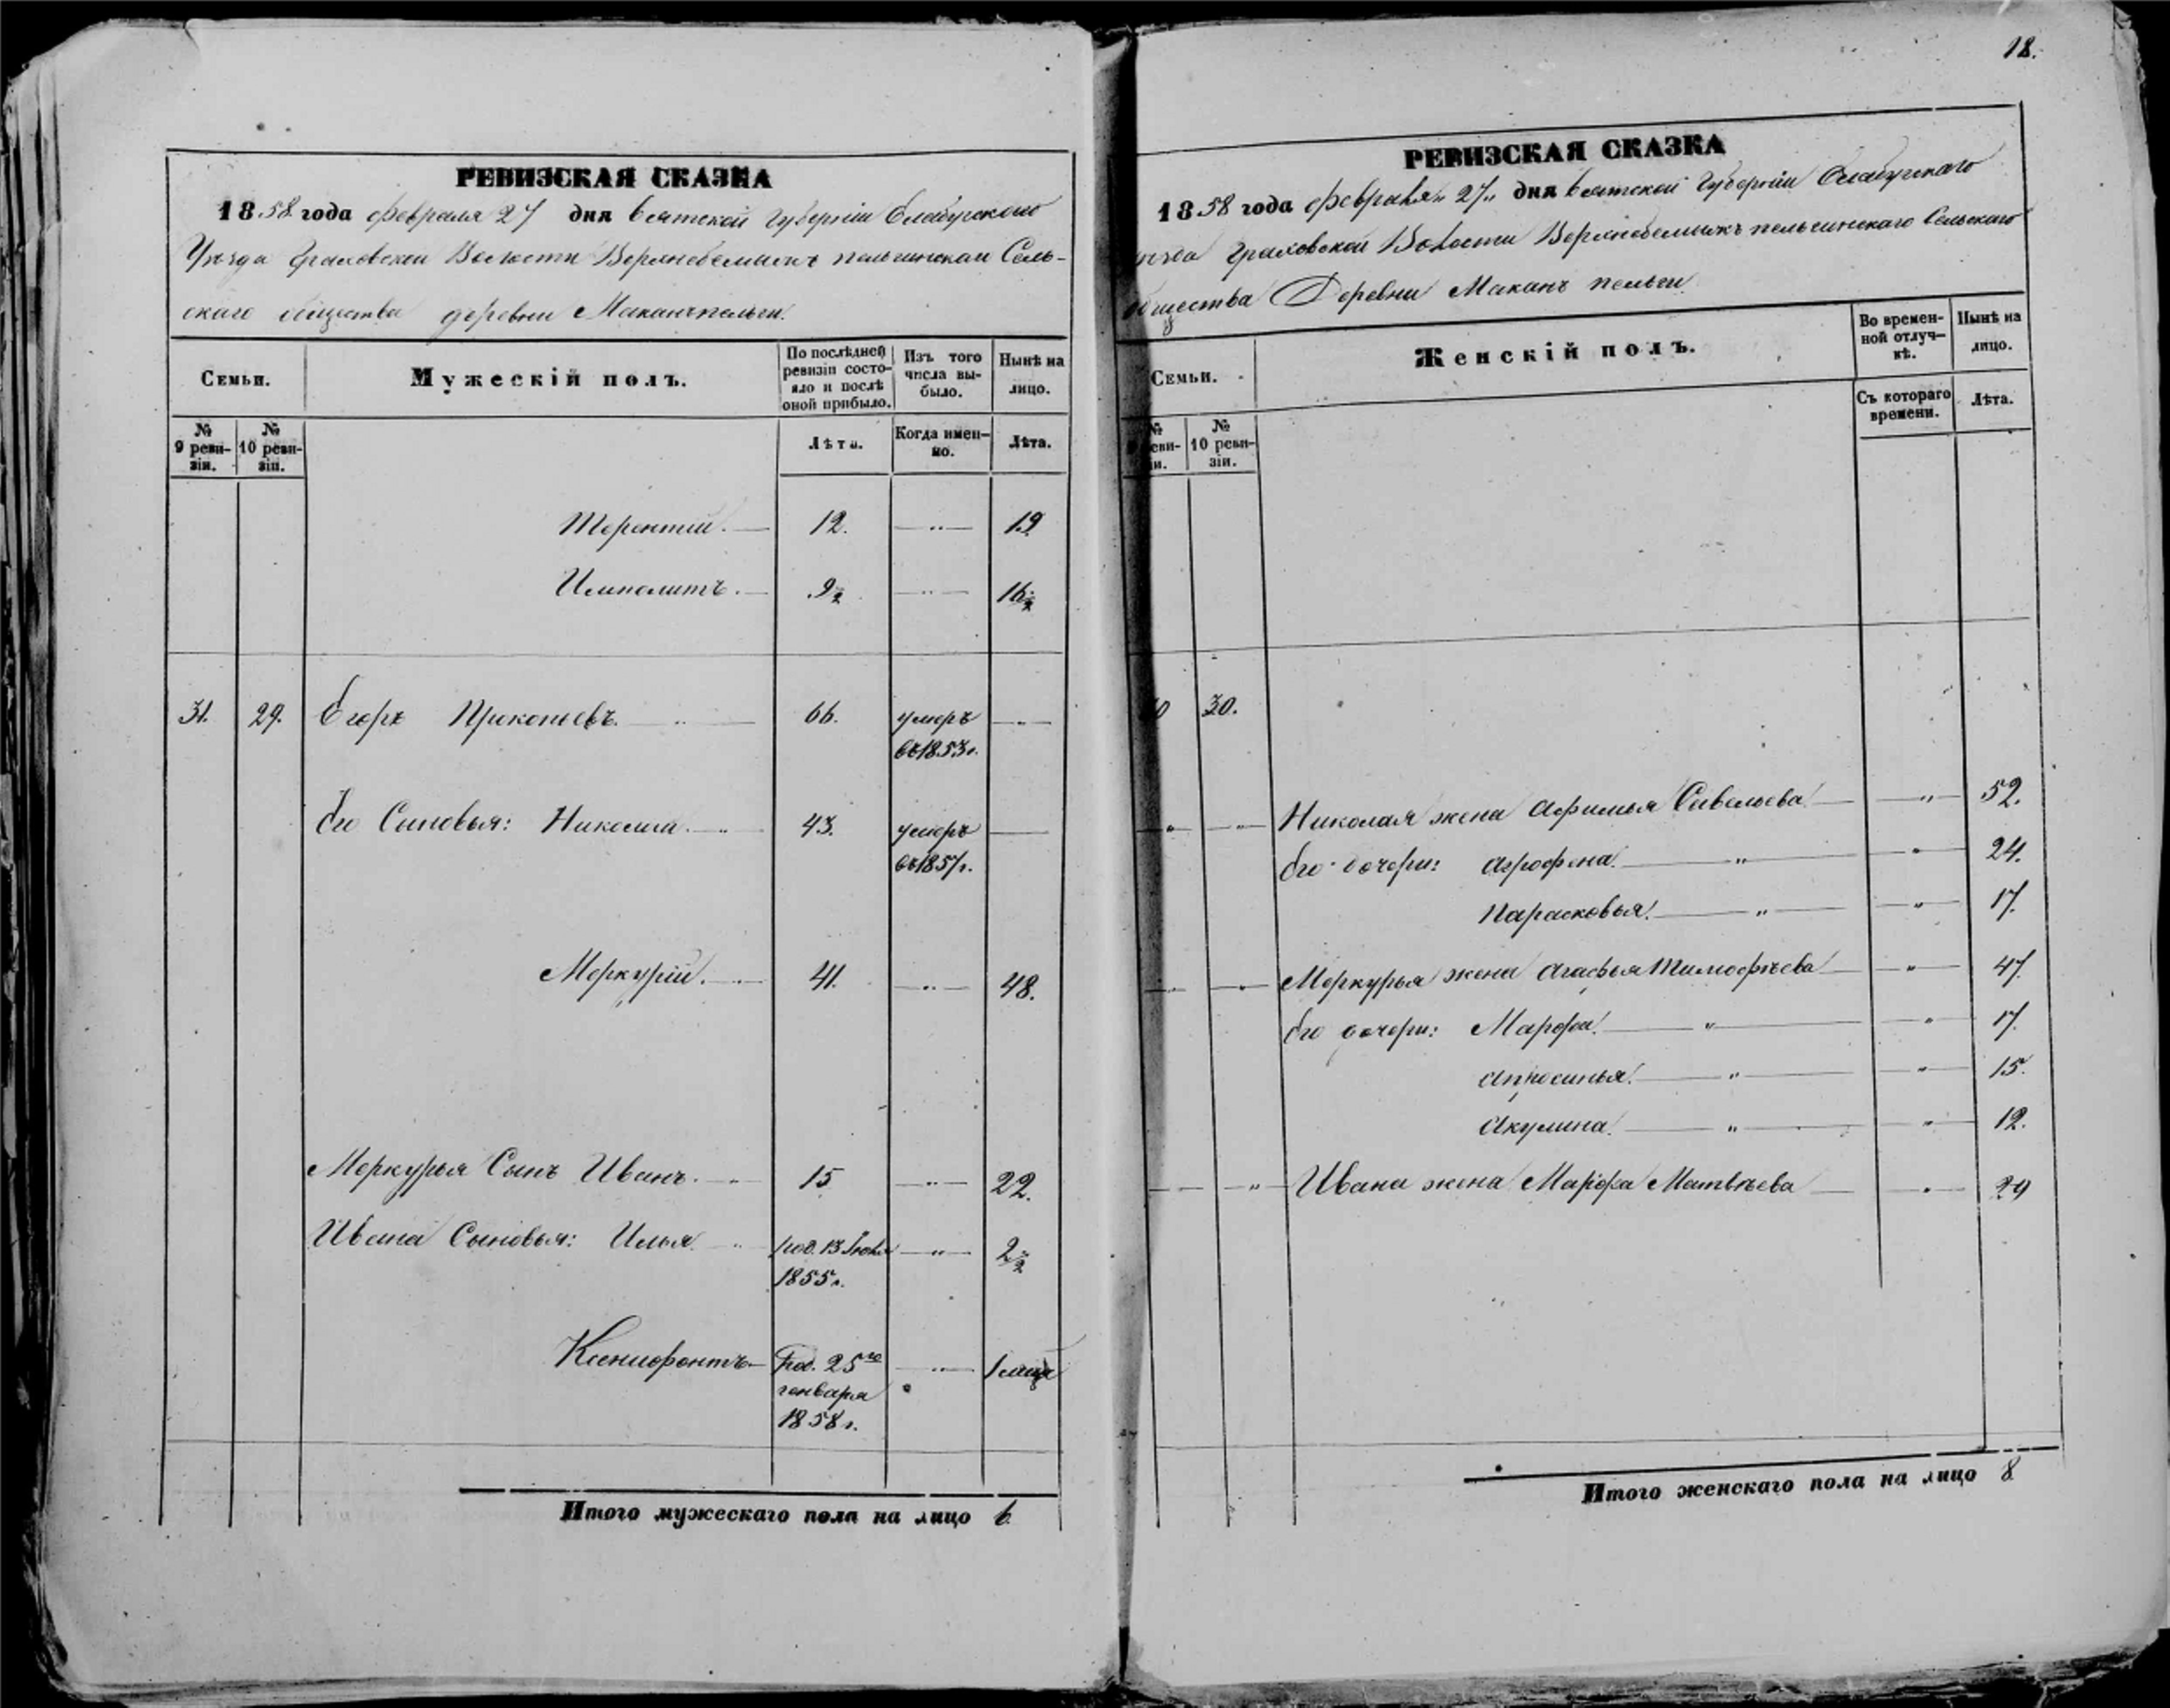 РЕВИЗСКАЯ СКАЗКА
1858 года февраля 27 дня вятской губерніи Елабугского
Уѣзда Граховской Волости Верхнебемыжъ пельгинскаго Сель-
скаго общества деревни Маканъпельги.
Семьи.
Мужескій полъ.
По послѣдней ревизіи состояло и послѣ оной прибыло.
Изъ того числа выбыло.
Нынѣ на лицо.
№ 9 ревизіи.
№ 10 ревизіи.
Лѣта.
Когда именно.
Лѣта.
Терентій. 12. —"— 19
Иполитъ. 9½ —"— 16½
31. 29. Егоръ Прокопьевъ. 66. умеръ —"—
въ 1853 г.
Его Сыновья: Николай. 43. умеръ —
въ 1857 г.
Меркурій. 41. —"— 48.
Меркурья Сынъ Иванъ. 15 —"— 22.
Ивана Сыновья: Илья. род. 13 Іюля —"— 2½
1855 г.
Ксенофонтъ— Род. 25го —"— 1 мца
генваря
1858 г.
Итого мужескаго пола на лицо 6
18.
РЕВИЗСКАЯ СКАЗКА
1858 года февраля „27„ дня вятской Губерніи Елабугскаго
уѣзда Граховской Волости Верхнебемыжъ пельгинскаго Сельскаго
общества Деревни Маканъ пельги.
Семьи.
Женскій полъ.
Во временной отлучкѣ.
Нынѣ на лицо.
№ ревизіи.
№ 10 ревизіи.
Съ котораго времени.
Лѣта.
30.
Николая жена Афимья Савельева —"— 52.
Его дочери: Агрофена. —"— 24.
Парасковья. —"— 17.
Меркурья жена Агафья Тимофѣева —"— 47
Его дочери: Марфа. —"— 17
Апросинья. —"— 15.
Акулина. —"— 12.
Ивана жена Марфа Матвѣева —"— 24
Итого женскаго пола на лицо 8